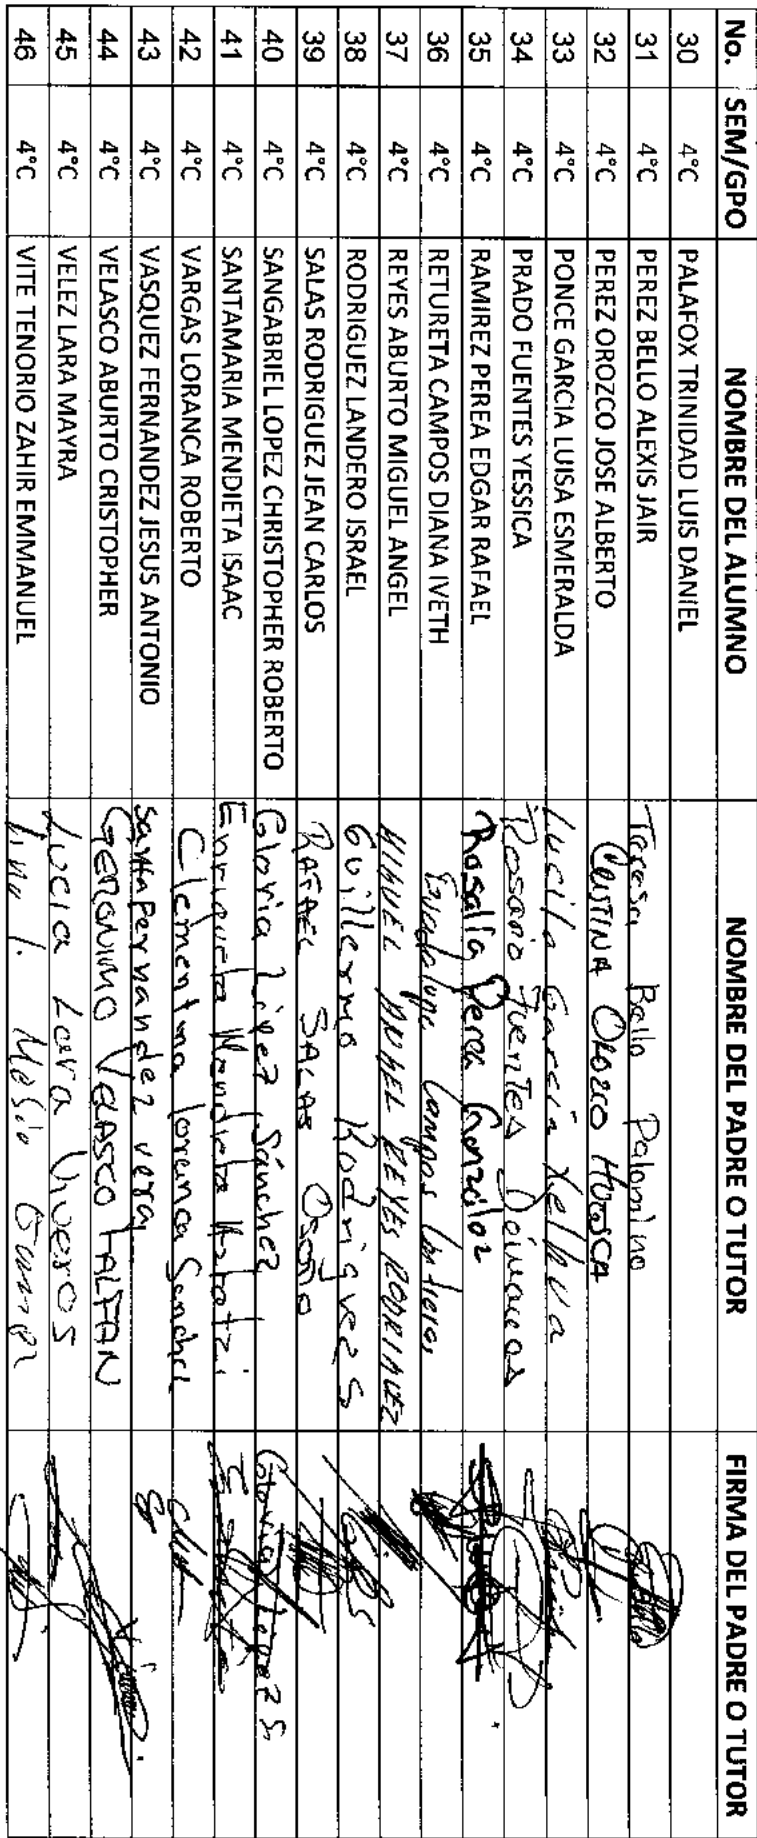 No. SEM/GPO NOMBRE DEL ALUMNO NOMBRE DEL PADRE O TUTOR FIRMA DEL PADRE O TUTOR
30 4°C PALAFOX TRINIDAD LUIS DANIEL
31 4°C PEREZ BELLO ALEXIS JAIR Teresa Bello Palomino
32 4°C PEREZ OROZCO JOSE ALBERTO CRISTINA OROZCO
33 4°C PONCE GARCIA LUISA ESMERALDA Lucila García Xelhua
34 4°C PRADO FUENTES YESSICA Rosario Fuentes
35 4°C RAMIREZ PEREA EDGAR RAFAEL Rosalía Perea González
36 4°C RETURETA CAMPOS DIANA IVETH Guadalupe Campos
37 4°C REYES ABURTO MIGUEL ANGEL MIGUEL ANGEL REYES RODRIGUEZ
38 4°C RODRIGUEZ LANDERO ISRAEL Guillermo Rodriguez S
39 4°C SALAS RODRIGUEZ JEAN CARLOS RAFAEL SALAS OSORIO
40 4°C SANGABRIEL LOPEZ CHRISTOPHER ROBERTO Gloria López Sánchez Gloria Lopez S
41 4°C SANTAMARIA MENDIETA ISAAC Enriqueta Mendieta
42 4°C VARGAS LORANCA ROBERTO Clementina loranca Sanchez
43 4°C VASQUEZ FERNANDEZ JESUS ANTONIO Sara Fernandez vera
44 4°C VELASCO ABURTO CRISTOPHER GERONIMO VELASCO FALFAN
45 4°C VELEZ LARA MAYRA Lucia Lara Viveros
46 4°C VITE TENORIO ZAHIR EMMANUEL